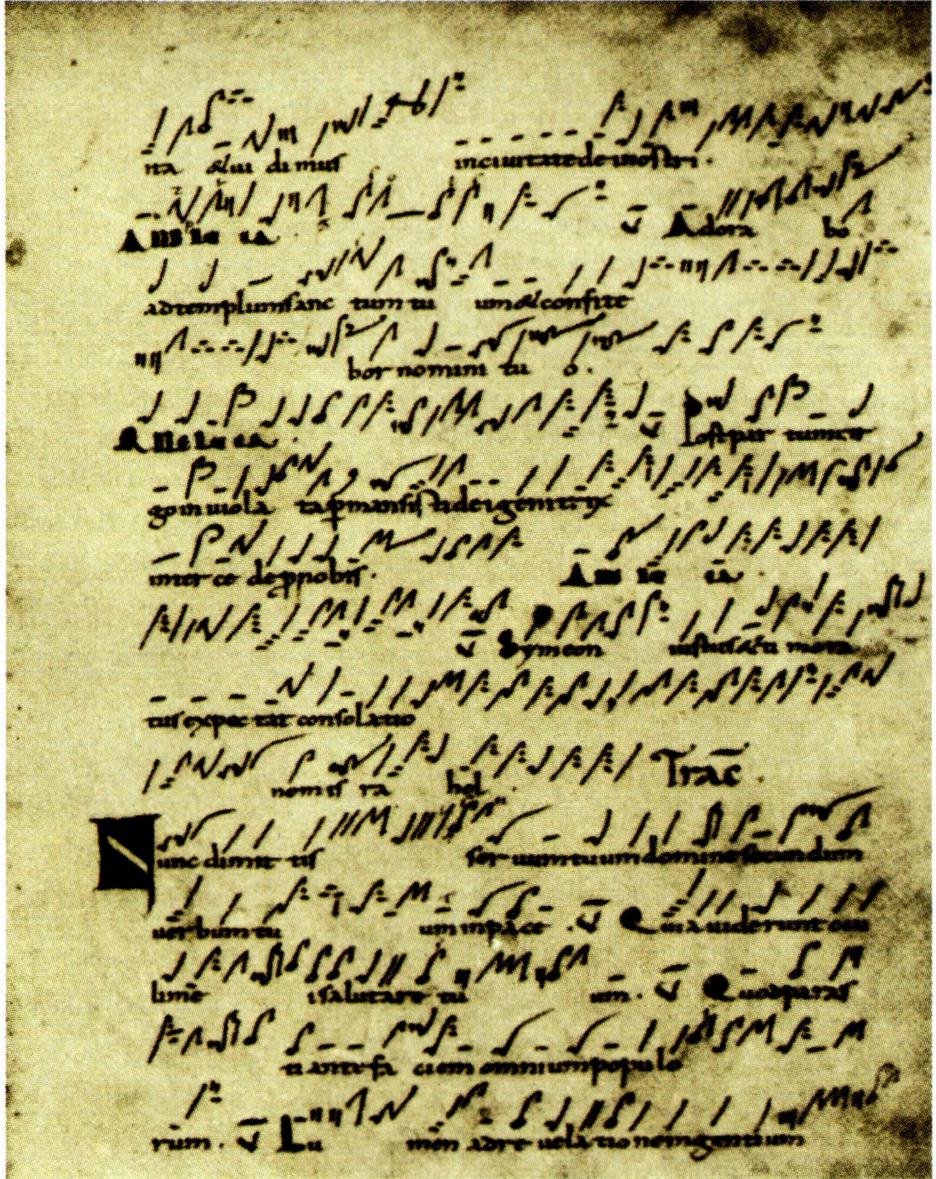 ita & ui di mus in ciuitate dei nostri.
Alle lu ia. v̄ Adora bo
ad templum sanc tum tu um & confite
bor nomini tu o.
Alle lu ia. v̄ Post par tum uir
go in uiola ta pmansisti dei genitrix
inter ce de p nobis. All lu ia.
v̄ Symeon iustus & ti mora
tus expec tat consolatio
nem is ra hel Trac̄.
Nunc dimit tis ser uum tuum domine secundum
uer bum tu um in pa ce. v̄ Quia uiderunt ocu
li me i salutare tu um. v̄ Quod paras
ti ante fa ciem omnium populo
rum. v̄ Lu men ad re uela tionem gentium